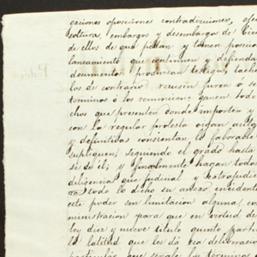 gaciones oposiciones contradicciones,
soltura, embargos y desembargos de bienes
de ellos de que pidan y tomen posesion
lanzamiento que continuen y defiendan
documentos produzcan testigos tachen
los de contrario recusen juren o se
terminos o los renuncien ganen todo
chos que presenten donde importe y
con la regular protesta oigan autos
y definitivos consientan lo favorable
supliquen, siguiendo el grado hasta
si se él; y finalmente hagan todas
diligencias que judicial y extrajudic
todo lo dicho su anexo incidente
este poder sin limitacion alguna, con
ministracion para que en virtud de
ley diez y nueve titulo quinto partida
la latitud que les da esa deliberacion